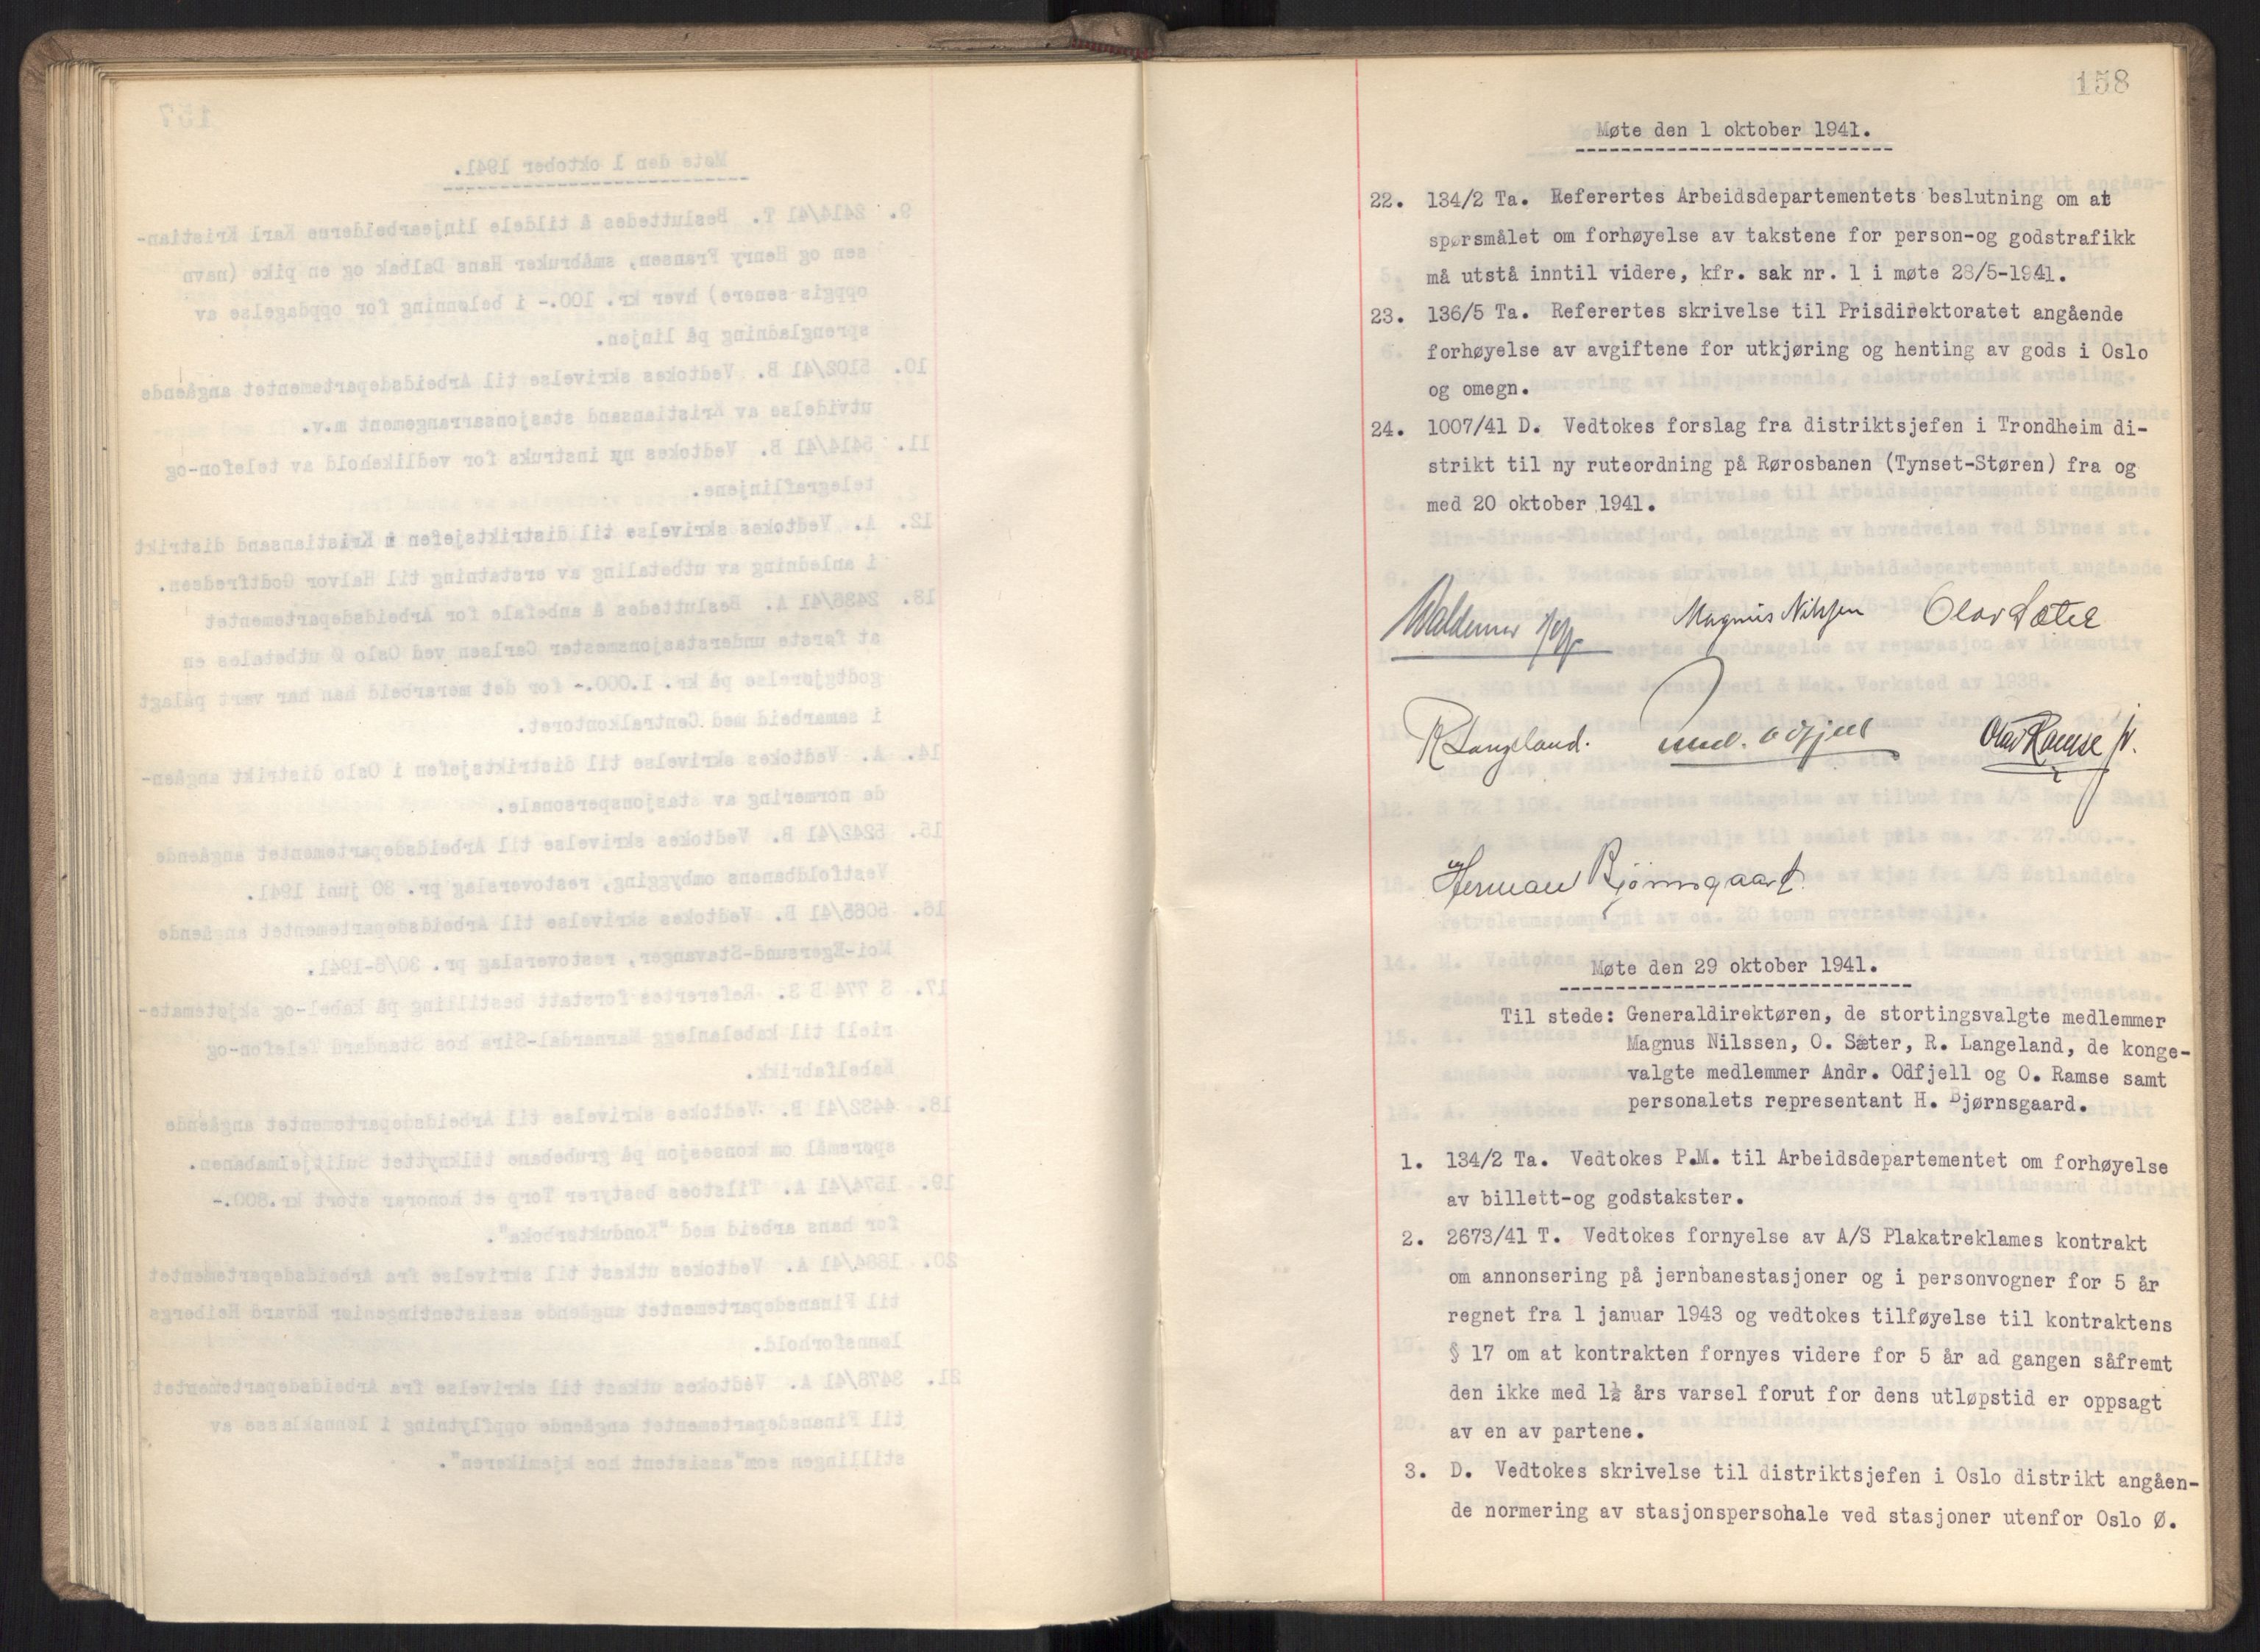 158
Møte den 1 oktober 1941.
22. 134/2 Ta. Referertes Arbeidsdepartementets beslutning om at
spørsmålet om forhøyelse av takstene for person-og godstrafikk
må utstå inntil videre, kfr. sak nr. 1 i møte 28/5-1941.
23. 136/5 Ta. Referertes skrivelse til Prisdirektoratet angående
forhøyelse av avgiftene for utkjøring og henting av gods i Oslo
og omegn.
24. 1007/41 D. Vedtokes forslag fra distriktsjefen i Trondheim di-
strikt til ny ruteordning på Rørosbanen (Tynset-Støren) fra og
med 20 oktober 1941.
Magnus Nilssen Olav Sæter
R Langeland. And. Odfjell Olav Ramse jr.
Herman Bjørnsgaard.
Møte den 29 oktober 1941.
Til stede: Generaldirektøren, de stortingsvalgte medlemmer
Magnus Nilssen, O. Sæter, R. Langeland, de konge-
valgte medlemmer Andr. Odfjell og O. Ramse samt
personalets representant H. Bjørnsgaard.
1. 134/2 Ta. Vedtokes P.M. til Arbeidsdepartementet om forhøyelse
av billett-og godstakster.
2. 2673/41 T. Vedtokes fornyelse av A/S Plakatreklames kontrakt
om annonsering på jernbanestasjoner og i personvogner for 5 år
regnet fra 1 januar 1943 og vedtokes tilføyelse til kontraktens
§ 17 om at kontrakten fornyes videre for 5 år ad gangen såfremt
den ikke med 1½ års varsel forut for dens utløpstid er oppsagt
av en av partene.
3. D. Vedtokes skrivelse til distriktsjefen i Oslo distrikt angåen-
de normering av stasjonspersonale ved stasjoner utenfor Oslo Ø.